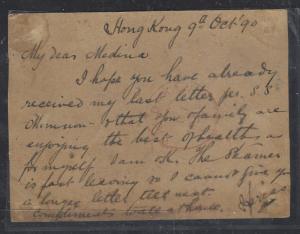 Hong Kong 9th Oct '90
My dear Medina
I hope you have already
received my last letter per S.S.
that you & family are
enjoying the best of health, as
for myself I am ok. The Steamer
is fast leaving so I cannot give you
a longer letter till next
compliments to all at home.